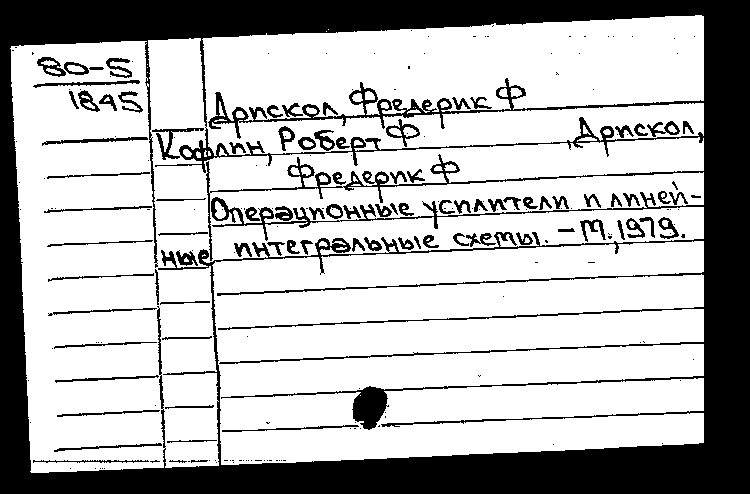 80-5
1845
Дрискол, Фредерик Ф
Кофлин, Роберт Ф , Дрискол,
Фредерик Ф
Операционные усилители и линей-
ные интегральные схемы. – М., 1979.